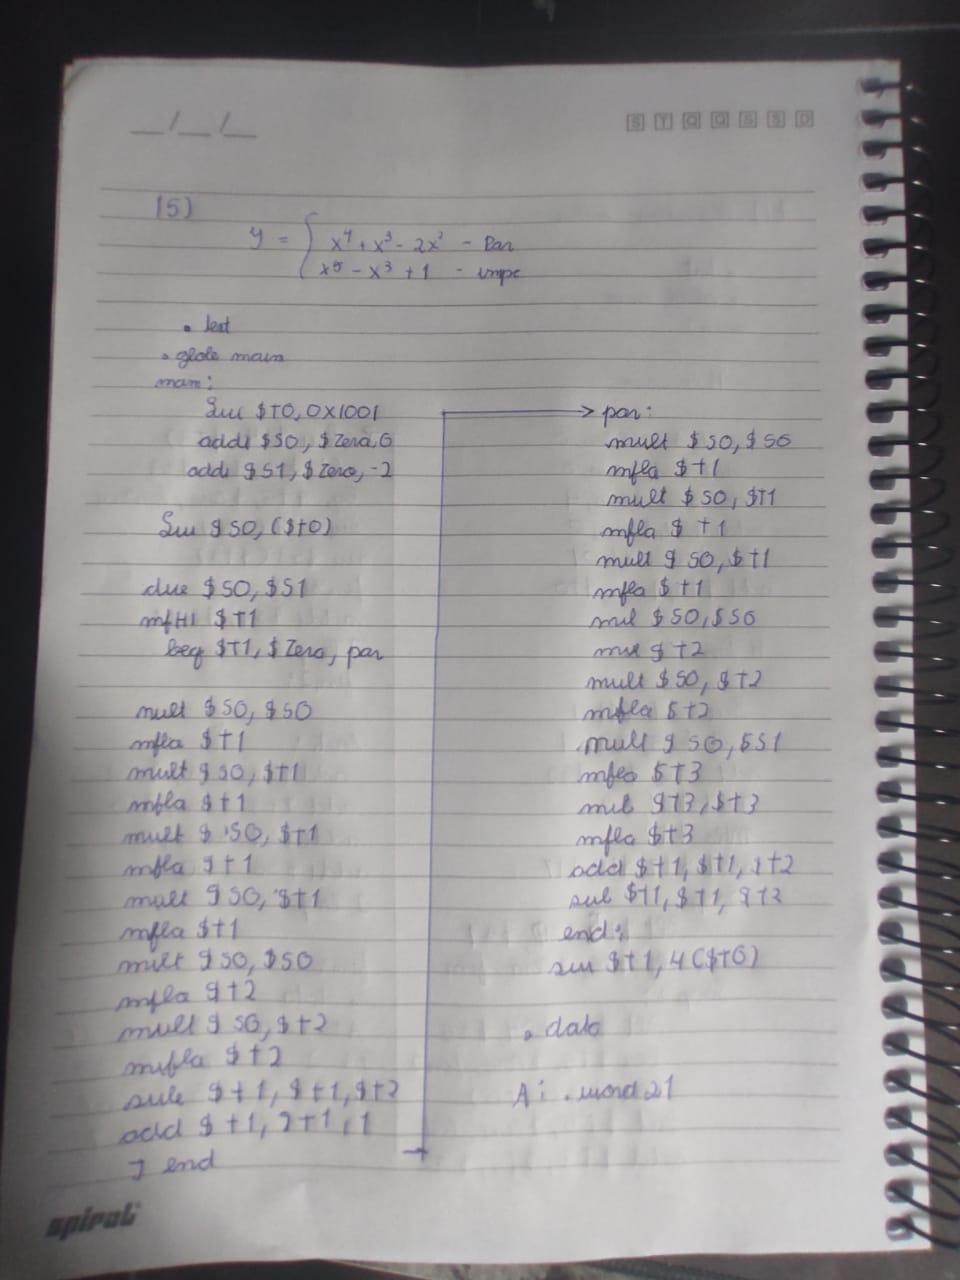 __/__/__
S T Q Q S S D
15)
y = { x⁴ + x³ - 2x² - Par
x⁵ - x³ + 1 - impa
.text
.globl main
main:
lui $t0, 0x1001
addi $s0, $zero, 0
addi $s1, $zero, -2
lw $s0, ($t0)
div $s0, $s1
mfHI $t1
beq $t1, $zero, par
mult $s0, $s0
mflo $t1
mult $s0, $t1
mflo $t1
mult $s0, $t1
mflo $t1
mult $s0, $t1
mflo $t1
mult $s0, $s0
mflo $t2
mult $s0, $t2
mflo $t2
sub $t1, $t1, $t2
add $t1, $t1, 1
J end
par:
mult $s0, $s0
mflo $t1
mult $s0, $t1
mflo $t1
mult $s0, $t1
mflo $t1
mul $s0, $s0
$t2
mult $s0, $t2
mflo $t2
mult $s0, $s1
mflo $t3
mul $t3, $t3
mflo $t3
add $t1, $t1, $t2
sub $t1, $t1, $t3
end:
sw $t1, 4($t0)
.data
A: .word 21
spiral